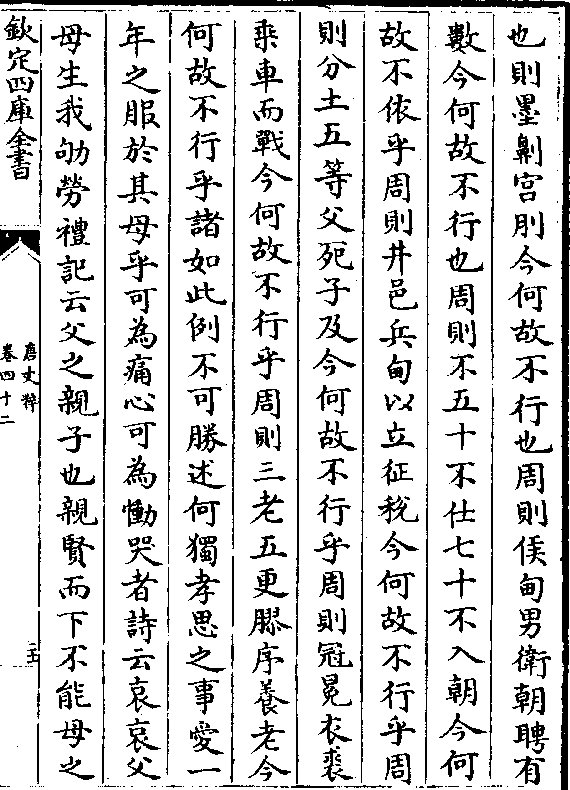 也則墨劓宫刖今何故不行也周則侯甸男衛朝聘有
數今何故不行也周則不五十不仕七十不入朝今何
故不依乎周則井邑兵甸以立征税今何故不行乎周
則分土五等父死子及今何故不行乎周則冠冕衣裘
乗車而戰今何故不行乎周則三老五更膠序養老今
何故不行乎諸如此例不可勝述何獨孝思之事愛一
年之服於其母乎可為痛心可為慟哭者詩云哀哀父
母生我劬勞禮記云父之親子也親賢而下不能母之
欽定四庫全書
唐文粹
卷四十二